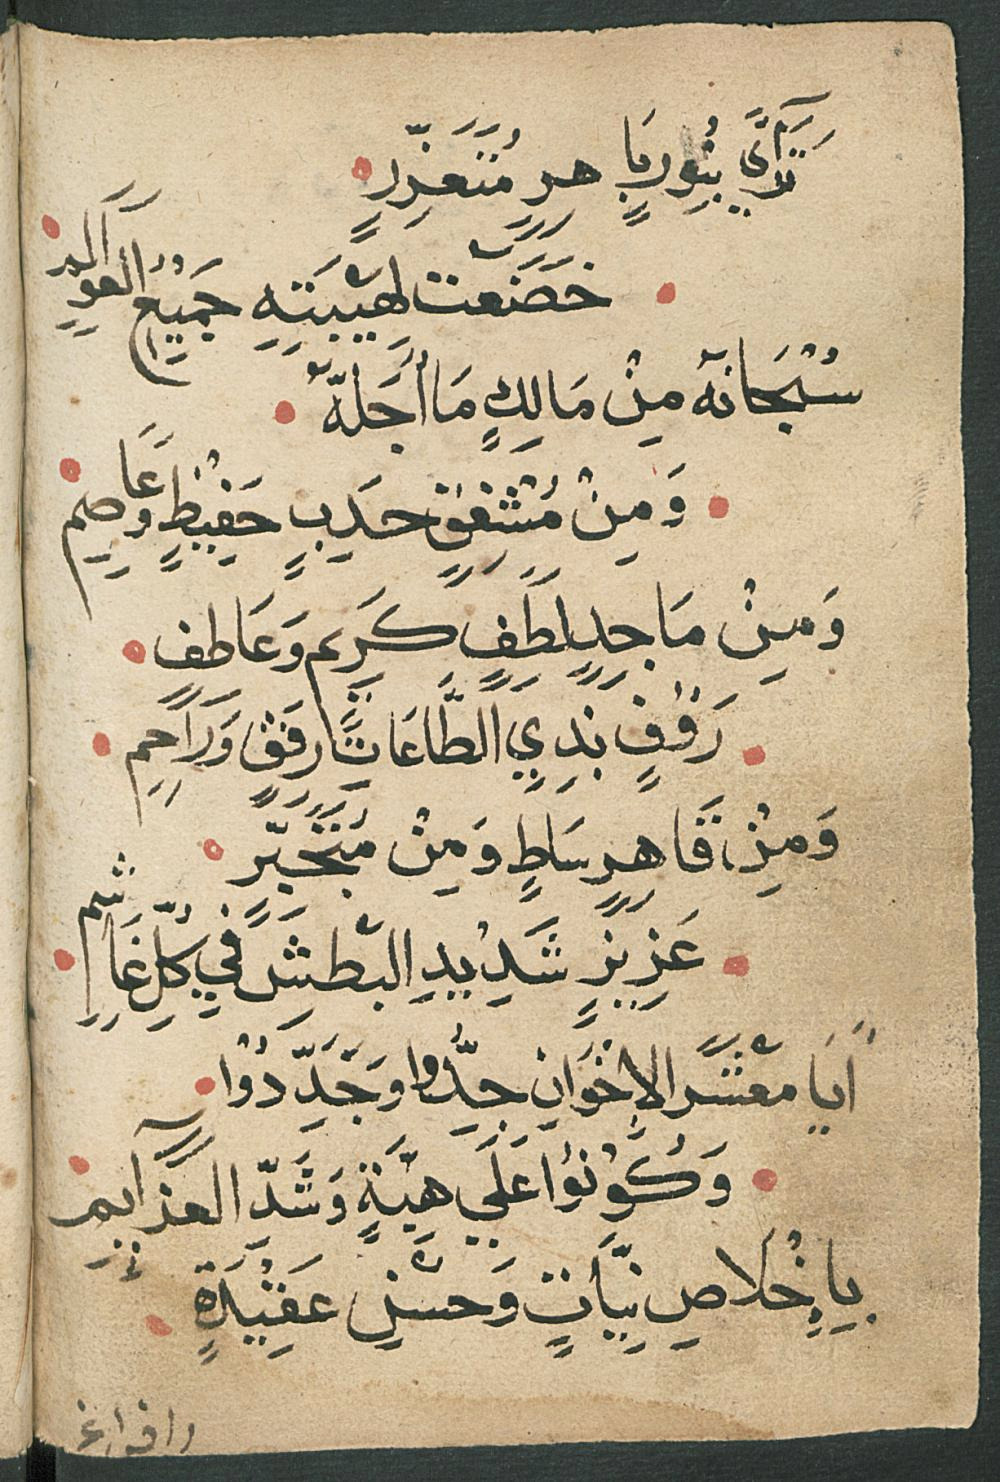 تَرَآءَى بِنُورٍ بَاهِرٍ مُتَعَزِّزٍ
خَضَعَتْ لِهَيْبَتِهِ جَمِيعُ الْعَوَالِمِ
سُبْحَانَهُ مِنْ مَالِكٍ مَا أَجَلَّهُ
وَمِنْ مُشْفِقٍ حَدِبٍ حَفِيظٍ وَعَاصِمِ
وَمِنْ مَاجِدٍ لَطِفٍ كَرِيمٍ وَعَاطِفٍ
رَؤُفٍ بِذِي الطَّاعَاتِ رَفِقٍ وَرَاحِمِ
وَمِنْ قَاهِرٍ سَاطٍ وَمِنْ مُتَجَبِّرٍ
عَزِيزٍ شَدِيدِ الْبَطْشِ فِي كُلِّ غَاشِمِ
أَيَا مَعْشَرَ الإِخْوَانِ جِدُّوا وَجَدِّدُوا
وَكُونُوا عَلَى هَيْئَةٍ وَشَدِّ الْعَزَايِمِ
بِإِخْلَاصِ نِيَّاتٍ وَحُسْنِ عَقِيْدَةٍ